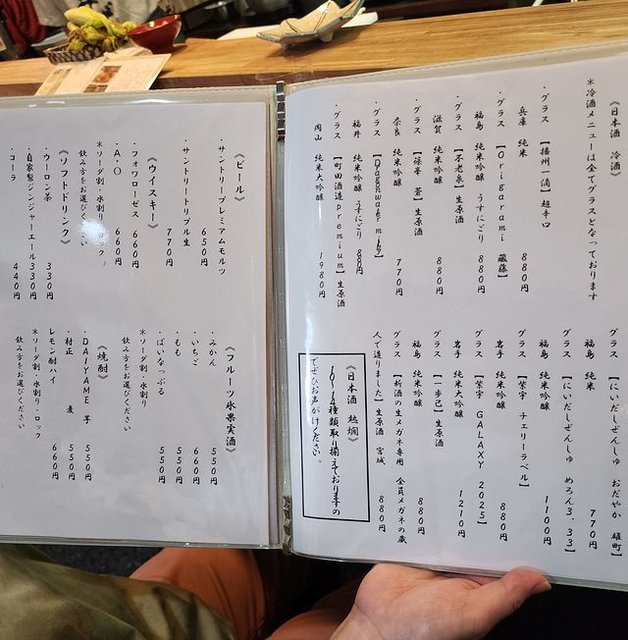 《日本酒 冷酒》
＊冷酒メニューは全てグラスとなっております
・グラス 【播州一滴】超辛口
兵庫 純米 880円
・グラス 【Origarami 醸藤】
福島 純米吟醸 うすにごり 880円
・グラス 【不老泉】生原酒
滋賀 純米吟醸 880円
・グラス 【篠峯 蒼】生原酒
奈良 純米吟醸 770円
・グラス 【Dragonwater mid】
福井 純米吟醸 うすにごり 880円
・グラス 【町田酒造premium】生原酒
岡山 純米大吟醸 1980円
グラス 【にいだしぜんしゅ おだやか 雄町】
福島 純米 770円
グラス 【にいだしぜんしゅ めろん3.33】
福島 純米吟醸 1100円
グラス 【紫宙 チェリーラベル】
岩手 純米吟醸 880円
グラス 【紫宙 GALAXY 2025】
岩手 純米大吟醸 1210円
グラス 【一歩己】生原酒
福島 純米吟醸 880円
グラス 【新酒の生メガネ専用 全員メガネの蔵
人で造りました】生原酒 宮城 880円
《日本酒 熱燗》
10〜14種類取り揃えております
ぜひお声がけください。
《ビール》
・サントリープレミアムモルツ
650円
・サントリートリプル生
770円
《ウイスキー》
・フォアローゼス 660円
・A.O 660円
＊ソーダ割・水割り・
飲み方をお選びください
《ソフトドリンク》
・ウーロン茶 330円
・自家製ジンジャーエール 330円
・コーラ 440円
《フルーツ氷果実酒》
・みかん 550円
・いちご 660円
・もも 550円
・ぱいなっぷる 550円
＊ソーダ割り、水割り
飲み方をお選びください
《焼酎》
・DAIYAME 芋 550円
・村正 麦 550円
レモン酎ハイ 660円
＊ソーダ割り・水割り・ロック
飲み方をお選びください